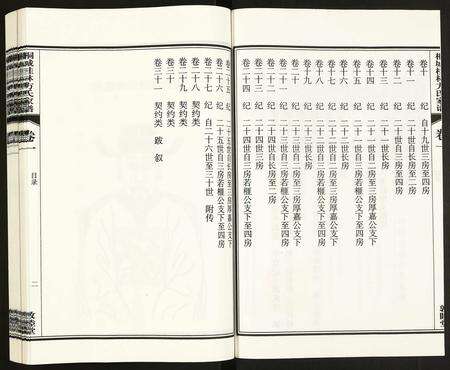 桐城桂林方氏家谱
卷一
卷十　纪　自十九世三房至四房
卷十一　纪　二十世自长房至二房
卷十二　纪　二十世自三房至四房
卷十三　纪　二十一世长房
卷十四　纪　二十一世自二房至四房
卷十五　纪　二十二世长房
卷十六　纪　二十二世自二房至三房厚嘉公支下
卷十七　纪　二十二世自三房若榧公支下至四房
卷十八　纪　二十三世自长房至三房厚嘉公支下
卷十九　纪　二十三世自三房若榧公支下至四房
卷二十　纪　二十三世自三房若榧公支下至四房
卷二十一　纪
卷二十二　纪　二十四世自长房至二房
卷二十三　纪　二十四世三房
卷二十四　纪　二十四世自三房若榧公支下至四房
卷二十五　纪　二十五世自长房至三房厚嘉公支下
卷二十六　纪　二十五世自三房若榧公支下至四房
卷二十七　纪　自二十六世至三十世　附传
卷二十八　契约类
卷二十九　契约类
卷三十　契约类
卷三十一　契约类　跋　叙
桐城桂林方氏家谱
卷一
目录
二
敦睦堂